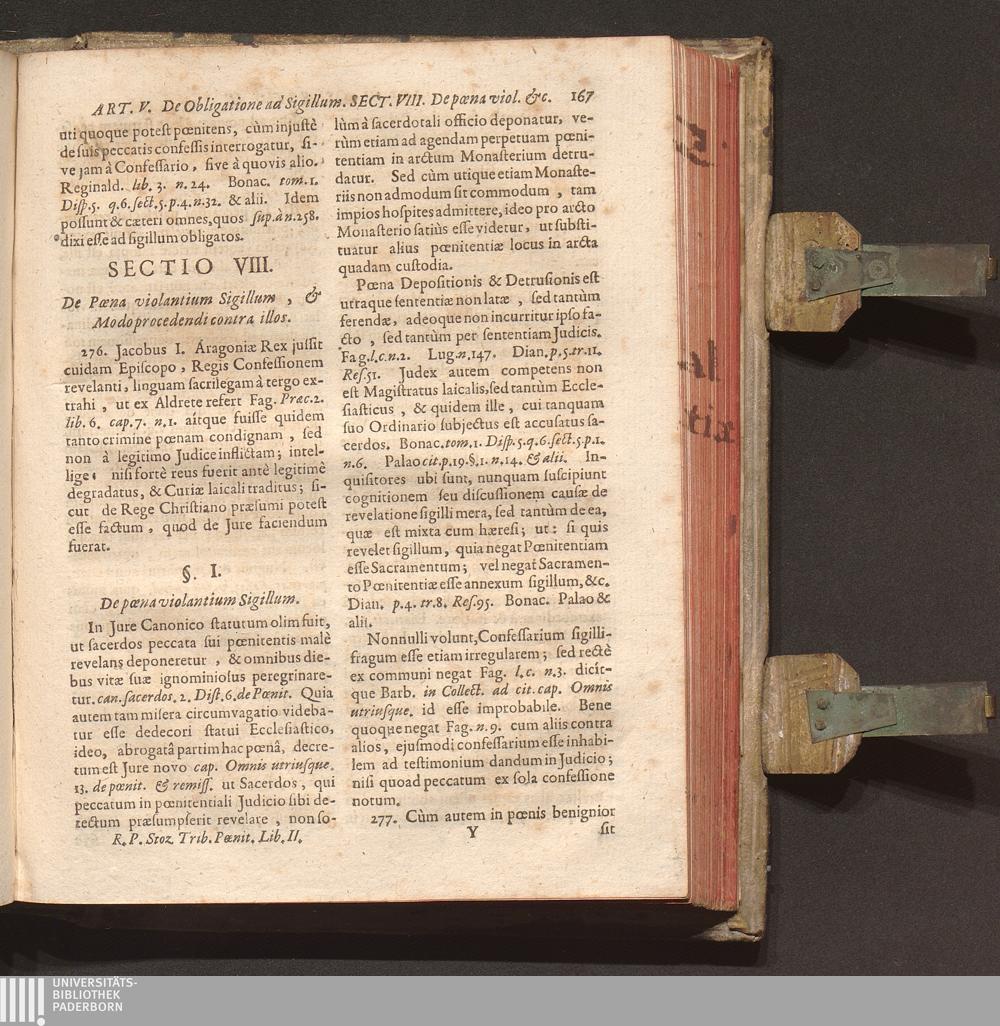 ART. V. De Obligatione ad Sigillum. SECT. VIII. De pœna viol. &c. 167
uti quoque poteſt pœnitens, cùm injuſtè
de ſuis peccatis confeſſis interrogatur, ſi-
ve jam à Confeſſario, ſive à quovis alio.
Reginald. lib. 3. n. 24. Bonac. tom. 1.
Diſp. 5. q. 6. ſect. 5. p. 4. n. 32. & alii. Idem
poſſunt & cæteri omnes, quos ſup. à n. 258.
dixi eſſe ad ſigillum obligatos.
SECTIO VIII.
De Pœna violantium Sigillum, &
Modo procedendi contra illos.
276. Jacobus I. Aragoniæ Rex juſſit
cuidam Epiſcopo, Regis Confeſſionem
revelanti, linguam ſacrilegam à tergo ex-
trahi, ut ex Aldrete refert Fag. Præc. 2.
lib. 6. cap. 7. n. 1. aitque fuiſſe quidem
tanto crimine pœnam condignam, ſed
non à legitimo Judice inflictam; intel-
lige: niſi fortè reus fuerit antè legitimè
degradatus, & Curiæ laicali traditus; ſi-
cut de Rege Chriſtiano præſumi poteſt
eſſe factum, quod de Jure faciendum
fuerat.
§. I.
De pœna violantium Sigillum.
In Jure Canonico ſtatutum olim fuit,
ut ſacerdos peccata ſui pœnitentis malè
revelans deponeretur, & omnibus die-
bus vitæ ſuæ ignominioſus peregrinare-
tur. can. ſacerdos. 2. Diſt. 6. de Pœnit. Quia
autem tam miſera circumvagatio videba-
tur eſſe dedecori ſtatui Eccleſiaſtico,
ideo, abrogatâ partim hac pœnâ, decre-
tum eſt Jure novo cap. Omnis utriuſque.
13. de pœnit. & remiſſ. ut Sacerdos, qui
peccatum in pœnitentiali Judicio ſibi de-
tectum præſumpſerit revelare, non ſo-
R. P. Stoz Trib. Pœnit. Lib. II.
lùm à ſacerdotali officio deponatur, ve-
rùm etiam ad agendam perpetuam pœni-
tentiam in arctum Monaſterium detru-
datur. Sed cùm utique etiam Monaſte-
riis non admodum ſit commodum, tam
impios hoſpites admittere, ideo pro arcto
Monaſterio ſatiùs eſſe videtur, ut ſubſti-
tuatur alius pœnitentiæ locus in arcta
quadam cuſtodia.
Pœna Depoſitionis & Detruſionis eſt
utraque ſententiæ non latæ, ſed tantùm
ferendæ, adeoque non incurritur ipſo fa-
cto, ſed tantùm per ſententiam Judicis.
Fag. l. c. n. 2. Lug. n. 147. Dian. p. 5. tr. 11.
Reſ. 51. Judex autem competens non
eſt Magiſtratus laicalis, ſed tantùm Eccle-
ſiaſticus, & quidem ille, cui tanquam
ſuo Ordinario ſubjectus eſt accuſatus ſa-
cerdos. Bonac. tom. 1. Diſp. 5. q. 6. ſect. 5. p. 1.
n. 6. Palao cit. p. 19. §. 1. n. 14. & alii. In-
quiſitores ubi ſunt, nunquam ſuſcipiunt
cognitionem ſeu diſcuſſionem cauſæ de
revelatione ſigilli mera, ſed tantùm de ea,
quæ eſt mixta cum hæreſi; ut: ſi quis
revelet ſigillum, quia negat Pœnitentiam
eſſe Sacramentum; vel negat Sacramen-
to Pœnitentiæ eſſe annexum ſigillum, &c.
Dian. p. 4. tr. 8. Reſ. 95. Bonac. Palao &
alii.
Nonnulli volunt, Confeſſarium ſigilli-
fragum eſſe etiam irregularem; ſed rectè
ex communi negat Fag. l. c. n. 3. dicit-
que Barb. in Collect. ad cit. cap. Omnis
utriuſque. id eſſe improbabile. Bene
quoque negat Fag. n. 9. cum aliis contra
alios, ejuſmodi confeſſarium eſſe inhabi-
lem ad teſtimonium dandum in Judicio;
niſi quoad peccatum ex ſola confeſſione
notum.
277. Cùm autem in pœnis benignior
Y ſit
UNIVERSITÄTS-
BIBLIOTHEK
PADERBORN